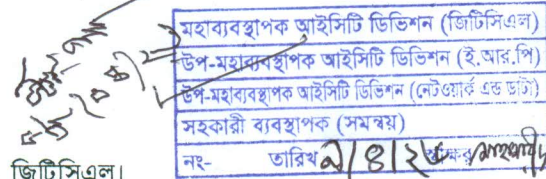 মহাব্যবস্থাপক আইসিটি ডিভিশন (জিটিসিএল)
উপ-মহাব্যবস্থাপক আইসিটি ডিভিশন (ই.আর.পি)
উপ-মহাব্যবস্থাপক আইসিটি ডিভিশন (নেটওয়ার্ক এন্ড ডাটা)
সহকারী ব্যবস্থাপক (সমন্বয়)
নং- তারিখ স্বাক্ষর
জিটিসিএল।